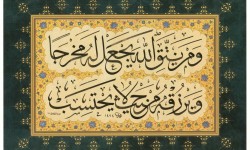 ومن يتق الله يجعل له مخرجا
ويرزقه من حيث لا يحتسب